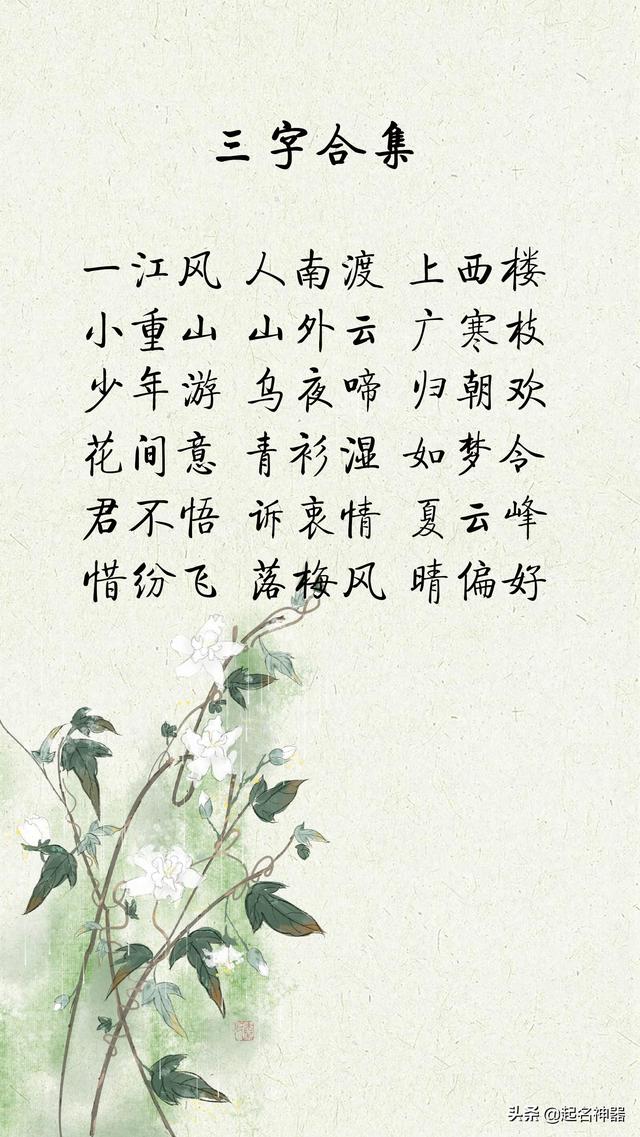 三字合集
一江风 人南渡 上西楼
小重山 山外云 广寒枝
少年游 乌夜啼 归朝欢
花间意 青衫湿 如梦令
君不悟 诉衷情 夏云峰
惜纷飞 落梅风 晴偏好
头条 @起名神器